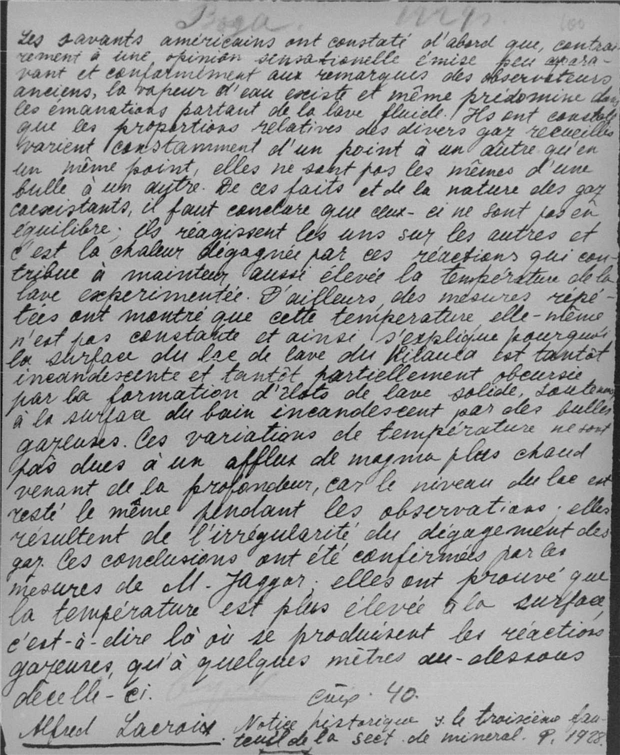 Вода. 
Les savants américains ont constaté d'abord que, contrai-
rement à une opinion sensationelle émise peu apara-
vant et conformément aux remarques des observateurs
anciens, la vapeur d'eau existe et même prédomine dans
les émanations partant de la lave fluide. Ils ont constaté
que les proportions relatives des divers gaz recueilles
varient constamment d'un point à un autre qu'en
un même point, elles ne sont pas les mêmes d'une
bulle à un autre. De ces faits et de la nature des gaz
coexistants, il faut conclure que ceux-ci ne sont pas en
équilibre; ils réagissent les uns sur les autres et
c'est la chaleur dégagnée par ces réactions qui con-
tribue à mainteur aussi élevée la température de la
lave experimentée. D'ailleurs, des mesures repé-
tées ont montré que cette température elle-même
n'est pas constante et ainsi s'explique pourquoi
la surface du lac de lave du Kilauea est tantôt
incandescente et tantôt partiellement obcursie
par la formation d'îlots de lave solide, soutenus
à la surface du bain incandescent par des bulles
gazeuses. Ces variations de température ne sont
pas dues à un afflux de magma plus chaud
venant de la profondeur, car le niveau du lac est
resté le même pendant les observations; elles
résultent de l'irrégularité du dégagement des
gaz. Ces conclusions ont été confirmées par les
mesures de M. Jaggar; elles ont prouvé que
la température est plus élevée à la surface,
c'est-à-dire là où se produisent les réactions
gazeuses, qu'à quelques mètres au-dessous
de celle-ci. 40.
Alfred Lacroix Notice historique s. le troisième fau-
teuil de la sect. de mineral. P. 1928